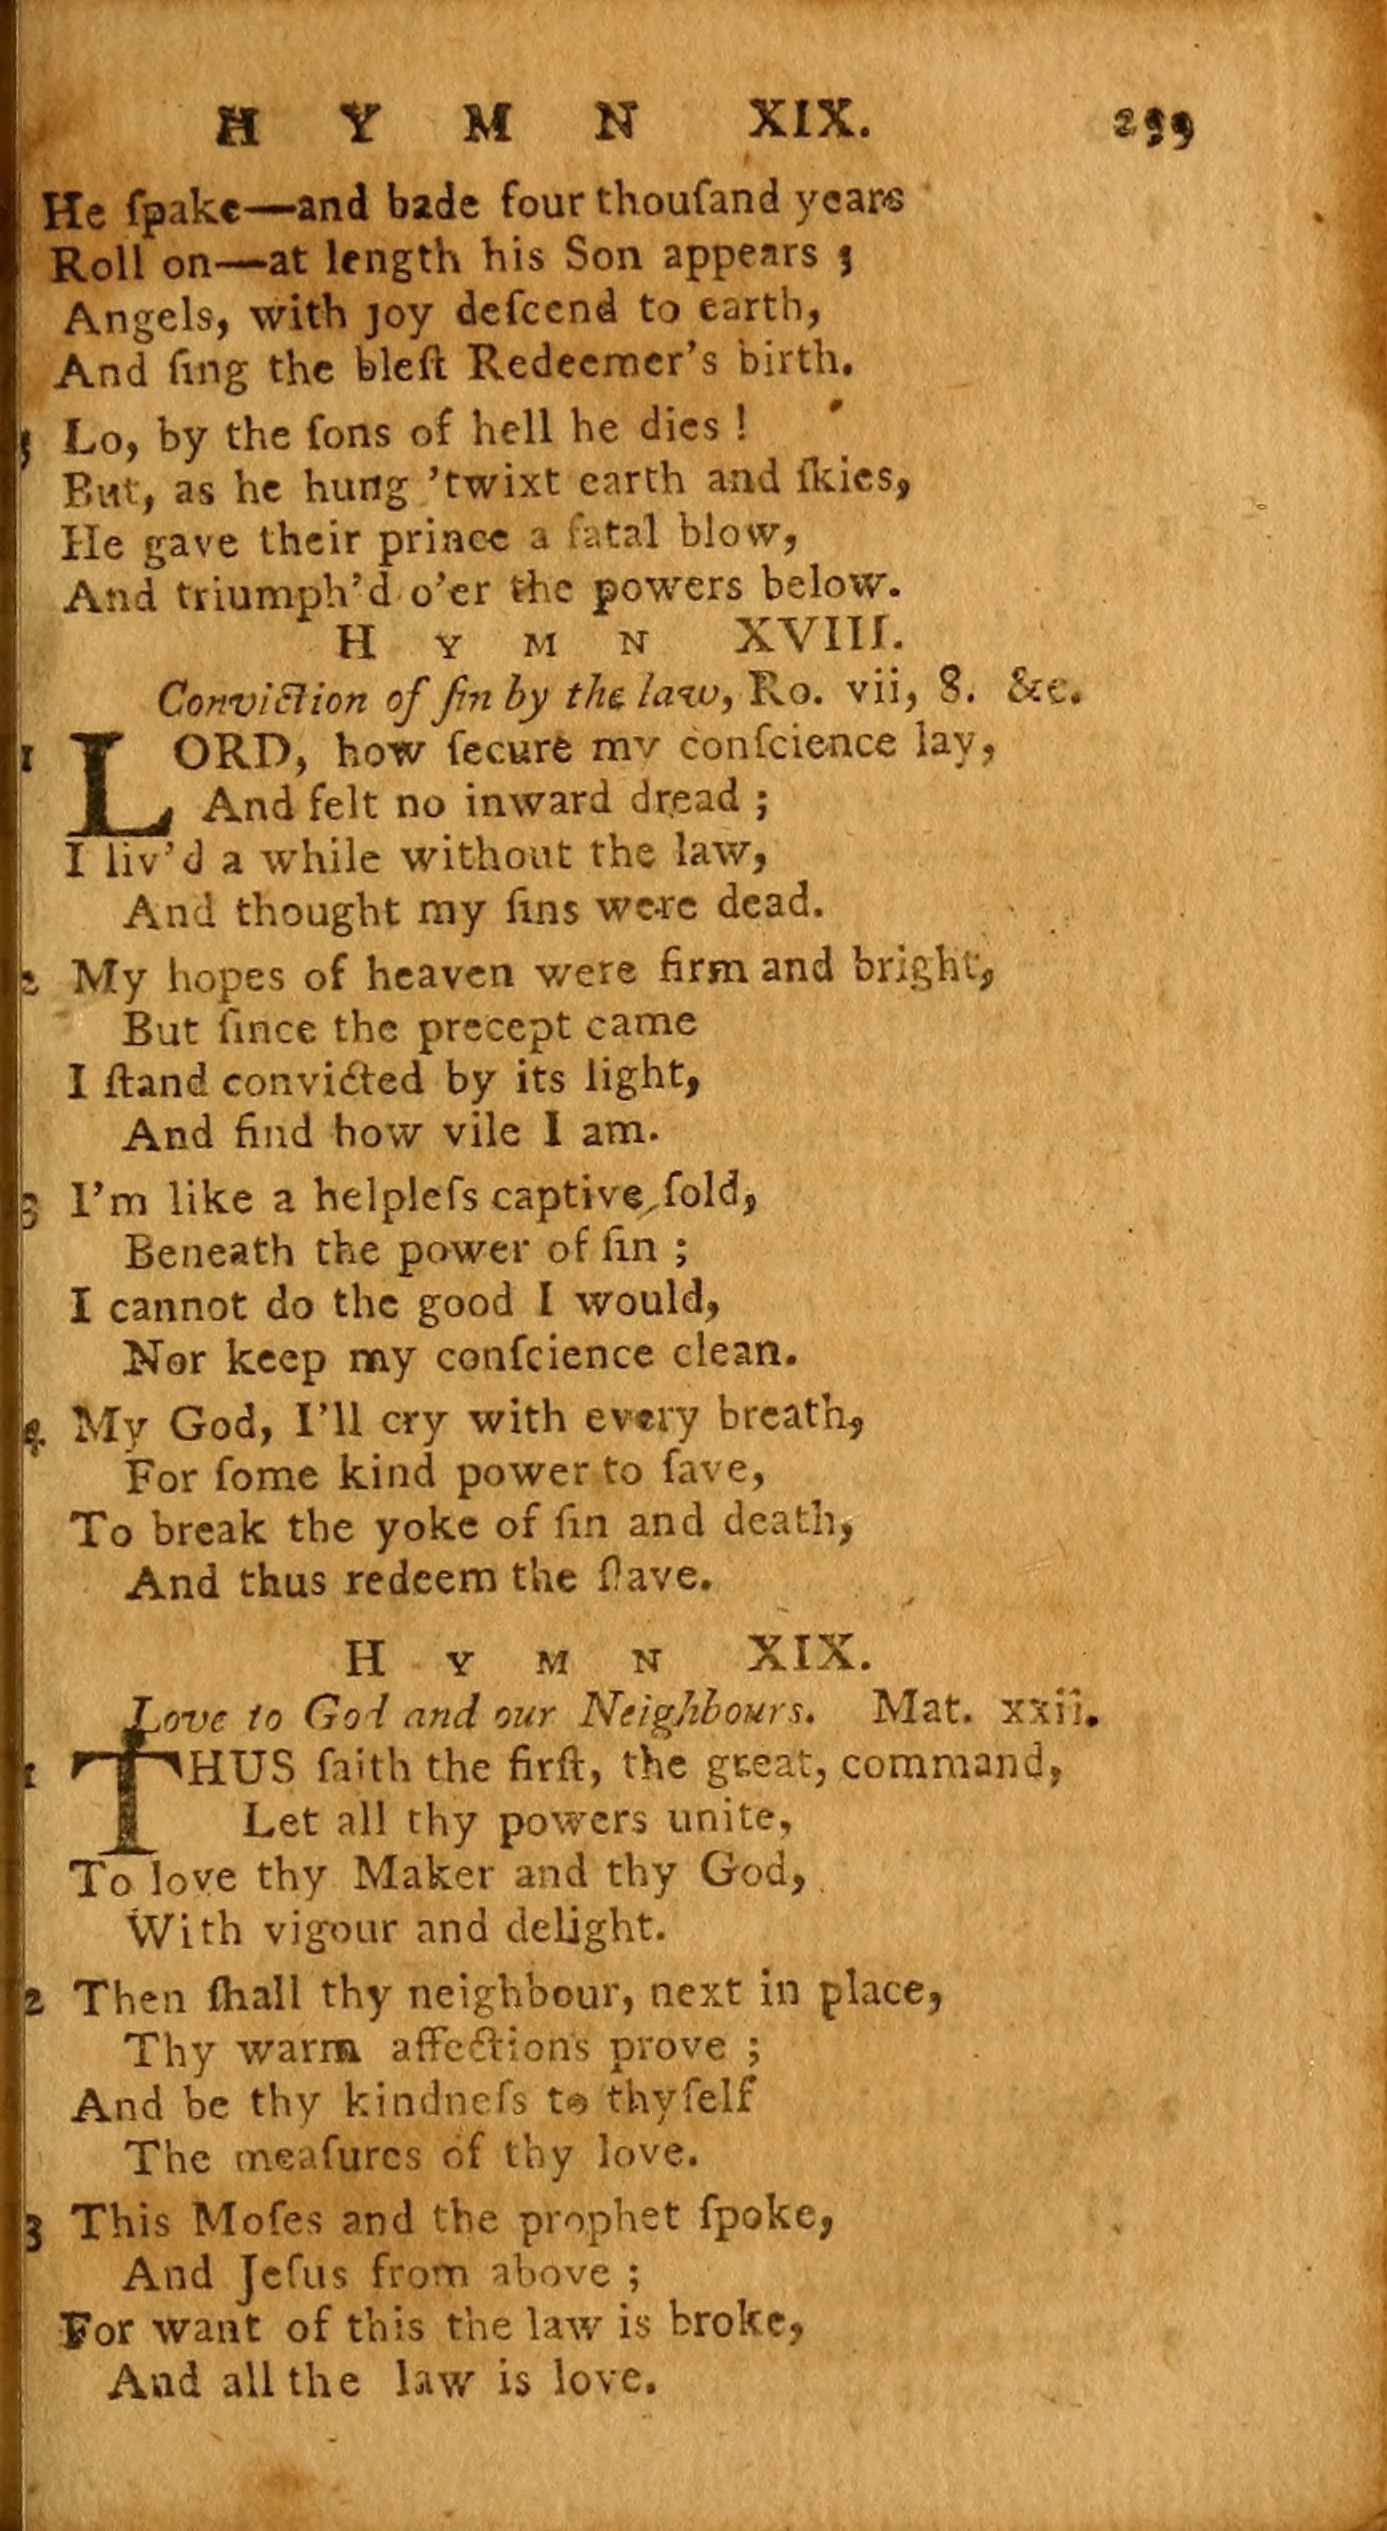 H Y M N XIX. 299
He ſpake—and bade four thouſand years
Roll on—at length his Son appears ;
Angels, with joy deſcend to earth,
And ſing the bleſt Redeemer's birth.
5 Lo, by the ſons of hell he dies !
But, as he hung 'twixt earth and ſkies,
He gave their prince a fatal blow,
And triumph'd o'er the powers below.
H Y M N XVIII.
Conviction of ſin by the law, Ro. vii, 8. &c.
1 LORD, how ſecure my conſcience lay,
And felt no inward dread ;
I liv'd a while without the law,
And thought my ſins were dead.
2 My hopes of heaven were firm and bright,
But ſince the precept came
I ſtand convicted by its light,
And find how vile I am.
3 I'm like a helpleſs captive, ſold,
Beneath the power of ſin ;
I cannot do the good I would,
Nor keep my conſcience clean.
4 My God, I'll cry with every breath,
For ſome kind power to ſave,
To break the yoke of ſin and death,
And thus redeem the ſlave.
H Y M N XIX.
Love to God and our Neighbours. Mat. xxii.
1 THUS ſaith the firſt, the great, command,
Let all thy powers unite,
To love thy Maker and thy God,
With vigour and delight.
2 Then ſhall thy neighbour, next in place,
Thy warm affections prove ;
And be thy kindneſs to thyſelf
The meaſures of thy love.
3 This Moſes and the prophet ſpoke,
And Jeſus from above ;
For want of this the law is broke,
And all the law is love.